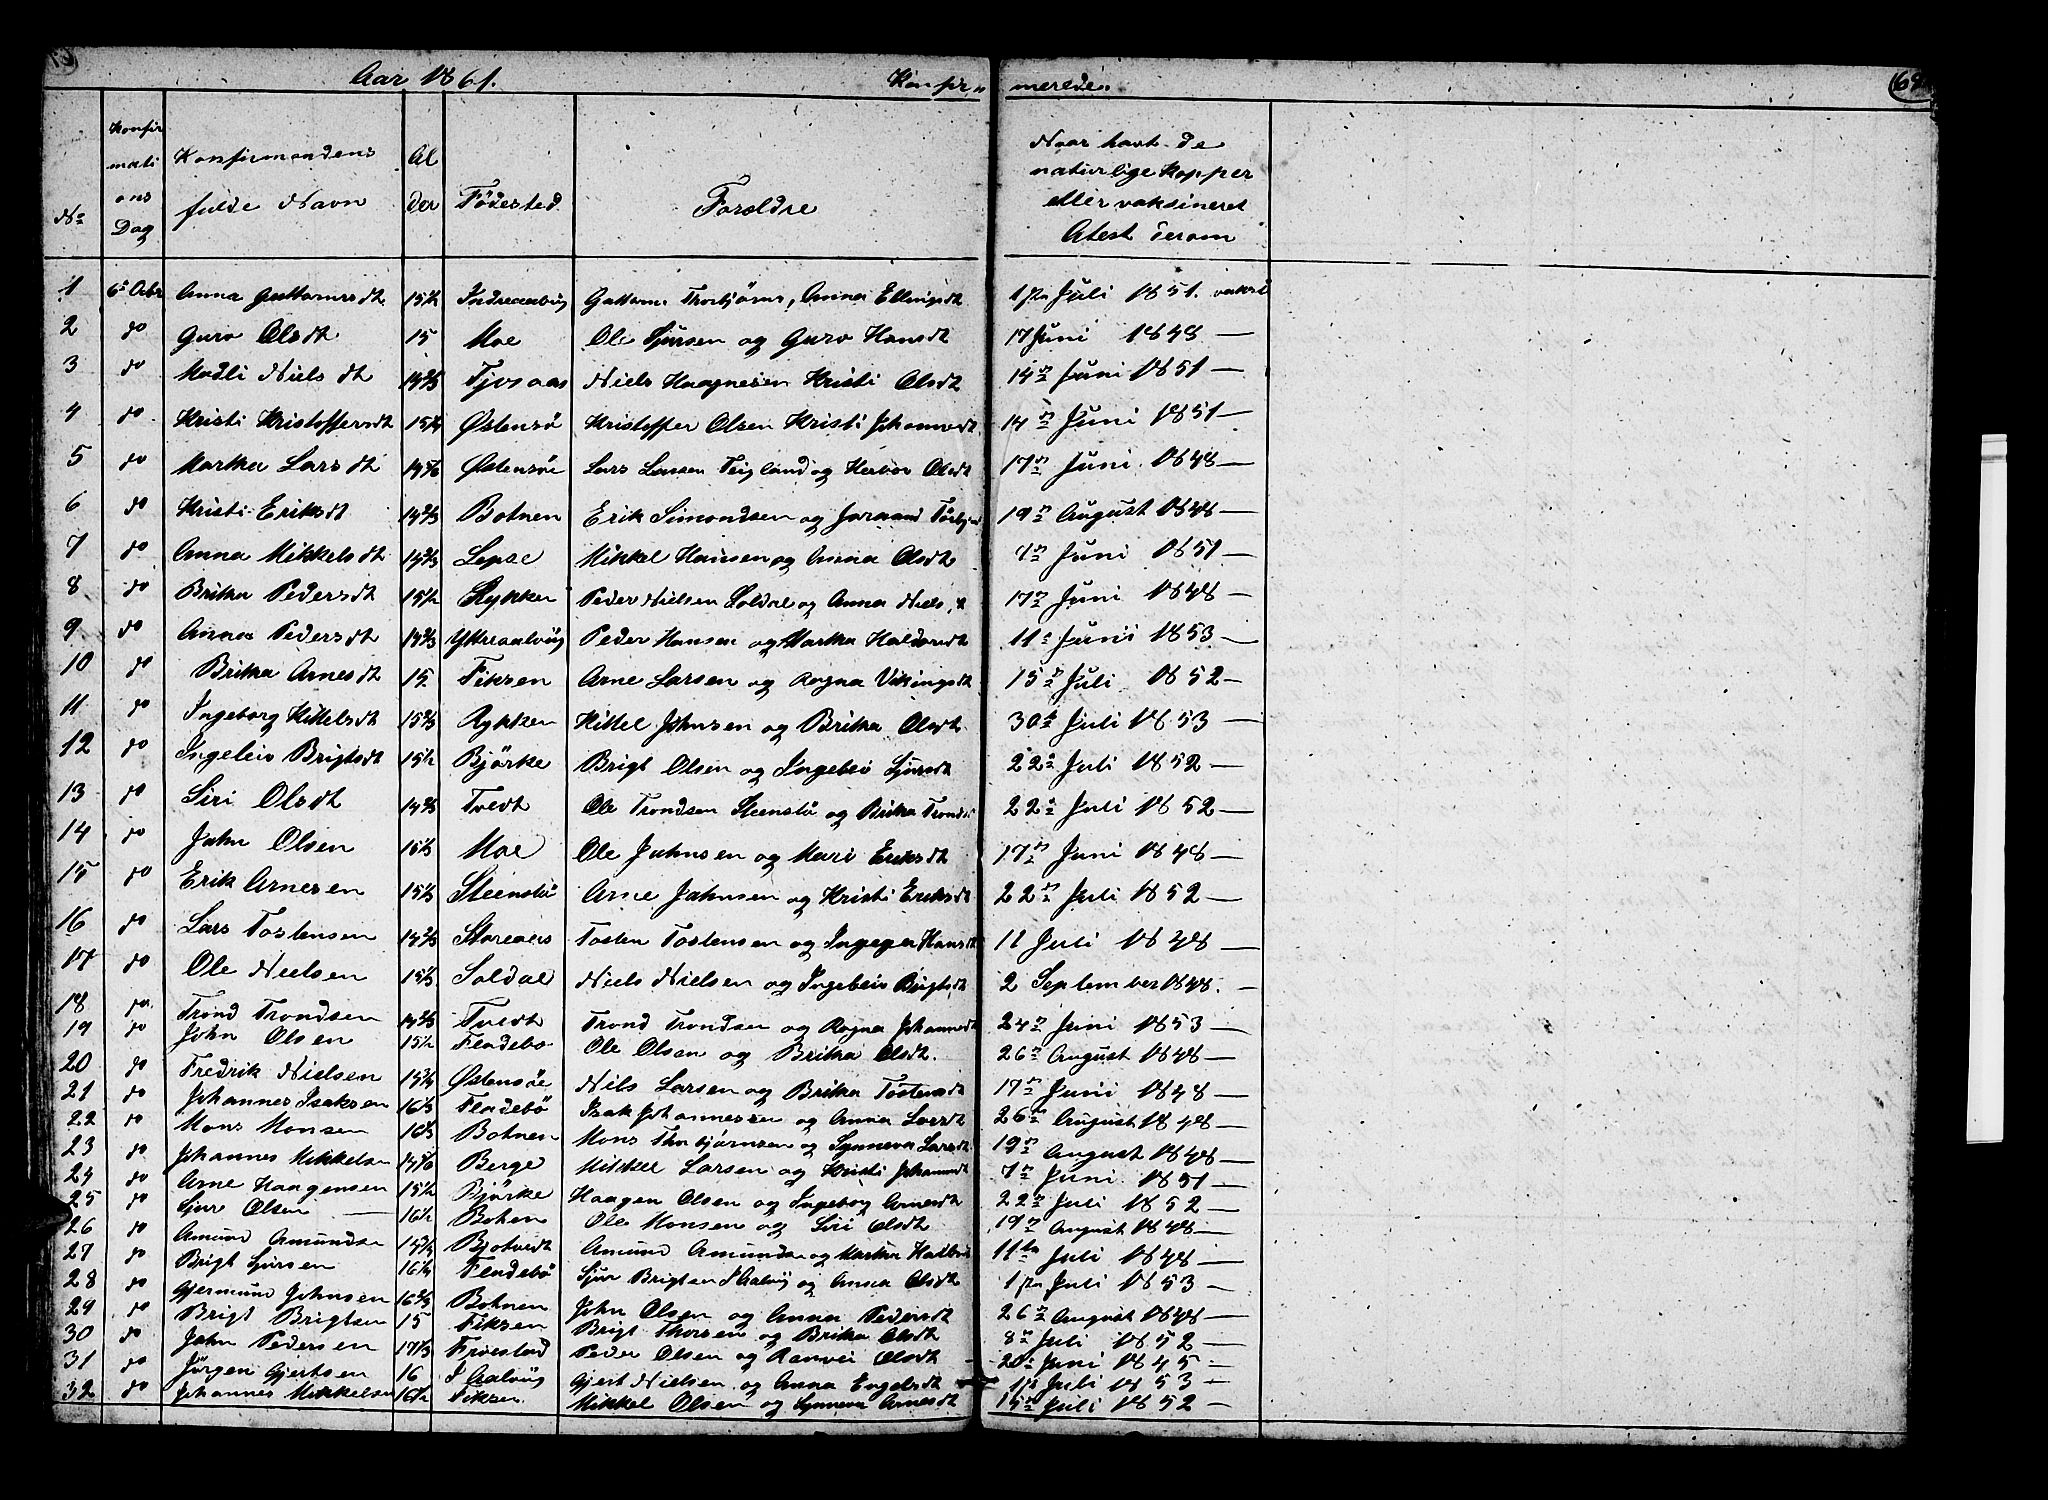 Aar 1861. Konfir„ merede„ 69
No Konfirmations Dag Konfirmandens fulde Navn Alder Födested Foreldre Naar havt de naturlige Kopper eller vaksineret Atest derom
1 6te Octbr Anna Guttormsdt 15½ Indreaalvig Guttorm Thorbjörns, Anna Ellingsdt 1ste Juli 1851. vaksi
2 do Guro Olsdt 15 Moe Ole Sjursen og Guro Hansdt 17 Juni 1848 —
3 do Madli Nielsdt Niels Haagnesen Kristi Olsdt 14de Juni 1851 —
4 do. Kristi Kristoffersdt Östensö Kristoffer Olsen Kristi Johannesdt 14de Juni 1851 —
5 do Martha Larsdt Östensöe Lars Larsen Teigland og Herbor Olsdt 17de Juni 1848 —
6 do Kristi Eriksdt Botnen Erik Simondsen og 19de August 1848 —
7 do Anna Mikkelsdt Lepse Mikkel Hansen og Anna Olsdt 7de Juni 1851 —
8 do Britha Pedersdt 15½ Rykken Peder Nielsen Soldal og Anna Niels 17de Juni 1848 —
9 do Anna Pedersdt 14⅔ Ytreaalvig Peder Hansen og Martha Haldorsdt 11te Juni 1853 —
10 do Britha Arnesdt 15 Fiksen Arne Larsen og Ragna Vikingsdt 15de Juli 1852 —
11 do Ingeborg Kittelsdt Rykken Kittel Johnsen og Britha Olsdt 30te Juli 1853 —
12 do Ingeleiv Brigtsdt 15½ Björke Brigt Olsen og Ingebei Sjursdt 22de Juli 1852 —
13 do Siri Olsdt Tvedt Ole Trondsen Steenstö og Britha Tronds 22de Juli 1852 —
14 do John Olsen Moe Ole Johnsen og Mari Eriksdt 17de Juni 1848 —
15 do Erik Arnesen Steenstö Arne Johnsen og Kristi Eriksdt 22de Juli 1852 —
16 do Lars Tostensen Storeaas Tosten Tostensen og Ingeger Hansdt 11 Juli 1848 —
17 do Ole Nielsen Soldal Niels Nielsen og Ingebeiv Brigtsdt 2 September 1848. —
18 do. Trond Trondsen Tvedt Trond Trondsen og Ragna Johannesdt 24de Juni 1853 —
19 do John Olsen 15½ Fladebo Ole Olsen og Britha Olsdt. 26de August 1848 —
20 do Fredrik Nielsen Östensöe Nils Larsen og Britha Tostensdt 17de Juni 1848 —
21 do Johannes Isaksen Fladebö Isak Johannesen og Anna Larsdt 26de August 1848 —
22 do Mons Monsen Botnen Mons Thorbjörnsen og Synneva Larsdt 19de August 1848 —
23 do Johannes Mikkelsen Berge Mikkel Larsen og Kristi Johannesdt 7de Juni 1851 —
24 do Arne Haagensen 15½ Björke Haagen Olsen og Ingeborg Arnesdt 22de Juli 1852 —
25 do Sjur Olsen — 16½ Botnen Ole Monsen og Siri Olsdt 19de August 1848 —
26 do Amund Amundsen Bjotvedt Amund Amundsen og Martha 11te Juli 1848 —
27 do Brigt Sjursen Fladebö Sjur Brigtsen I Aalvig og Anna Olsdt 1ste Juli 1853 —
28 do Gjermund Johnsen Botnen John Olsen og Anna Pedersdt 26de August 1848 —
29 do Brigt Brigtsen 15 Fiksen Brigt Thorsen og Britha Olsdt 8de Juli 1852 —
30 do John Pedersen Peder Olsen og Ranvei Olsdt 20de Juni 1845 —
31 do Jörgen Gjertsen 16 I Aalvig Gjert Nielsen og Anna Engelsdt 1ste Juli 1853 —
32 do Johannes Mikkelsen 16½ Fiksen Mikkel Olsen og Synneva Arnesdt 15de Juli 1852 —